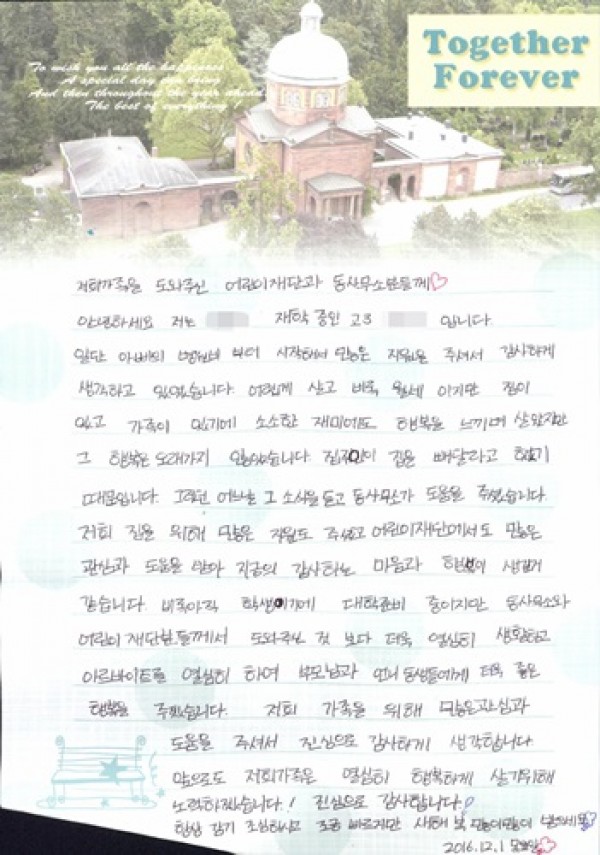 Together
Forever
To wish you all the happiness
A special day can bring
And then throughout the year ahead
The best of everything !
저희가족을 도와주신 어린이재단과 동사무소분들께♡
안녕하세요 저는 재학 중인 고3 입니다.
일단 아빠의 병원비 부터 시작해서 많은 지원을 주셔서 감사하게
생각하고 있었습니다. 어렵게 살고 비록 월세 이지만 집이
있고 가족이 있기에 소소한 재미에도 행복을 느끼며 살았지만
그 행복은 오래가지 않았습니다. 집주인이 집을 빼달라고 했기
때문입니다. 그런데 어느날 그 소식을 듣고 동사무소가 도움을 주셨습니다.
저희 집을 위해 많은 지원도 주셨고 어린이재단에서도 많은
관심과 도움을 받아 지금의 감사하는 마음과 행복이 생긴거
같습니다. 비록아직 학생이기에 대학준비 중이지만 동사무소와
어린이재단분들께서 도와주신 것 보다 더욱 열심히 생활하고
아르바이트를 열심히 하여 부모님과 언니 동생들에게 더욱 좋은
행복을 주겠습니다. 저희 가족을 위해 많은관심과
도움을 주셔서 진심으로 감사하게 생각합니다.
앞으로도 저희가족은 열심히 행복하게 살기위해
노력하겠습니다.! 진심으로 감사합니다!
항상 감기 조심하시고 조금 빠르지만 새해 복 많이많이 받으세요♡
2016.12.1